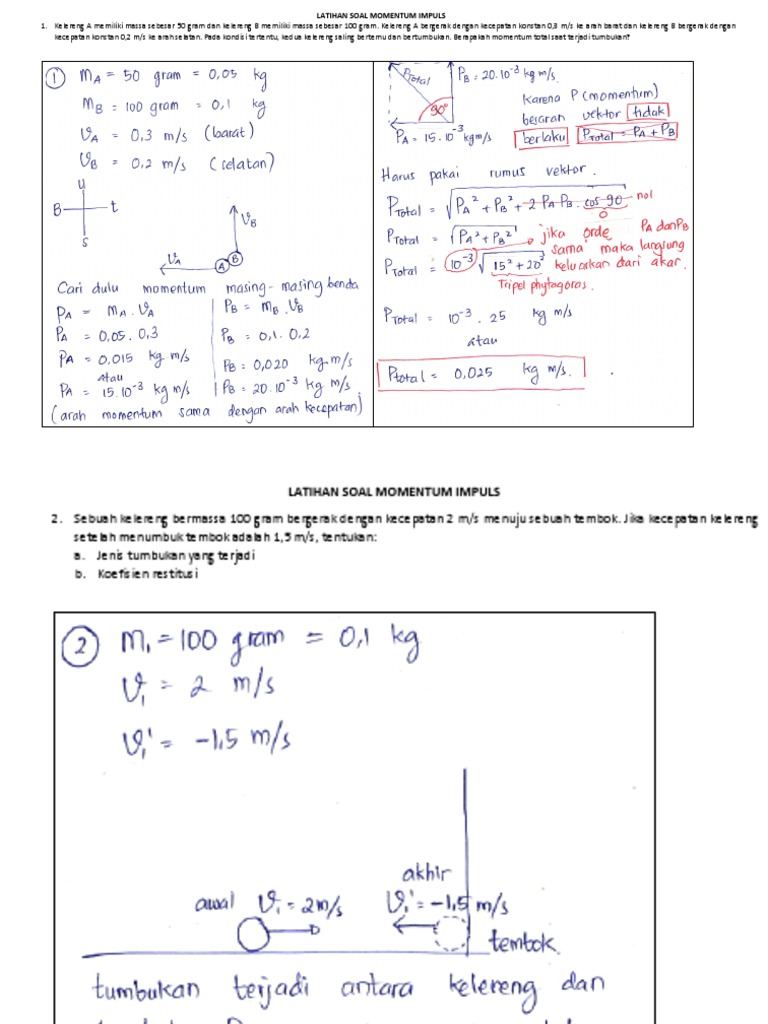 LATIHAN SOAL MOMENTUM IMPULS
1. Kelereng A memiliki massa sebesar 50 gram dan kelereng B memiliki massa sebesar 100 gram. Kelereng A bergerak dengan kecepatan konstan 0,3 m/s ke arah barat dan kelereng B bergerak dengan
kecepatan konstan 0,2 m/s ke arah selatan. Pada kondisi tertentu, kedua kelereng saling bertemu dan bertumbukan. Berapakah momentum total saat terjadi tumbukan?
1 mA = 50 gram = 0,05 kg
MB = 100 gram = 0,1 kg
VA = 0,3 m/s (barat)
VB = 0,2 m/s (selatan)
u
B t
s
VB
VA A B
Cari dulu momentum masing-masing benda
PA = MA . VA
PA = 0,05 . 0,3
PA = 0,015 kg m/s
atau
PA = 15.10⁻³ kg m/s
PB = MB . VB
PB = 0,1 . 0,2
PB = 0,020 kg.m/s
PB = 20.10⁻³ kg m/s
(arah momentum sama dengan arah kecepatan)
PTotal
PB = 20.10⁻³ kg m/s.
90°
PA = 15.10⁻³ kg m/s
Karena P (momentum)
besaran vektor tidak
berlaku PTotal = PA + PB
Harus pakai rumus vektor.
PTotal = √PA² + PB² + 2 PA PB . cos 90 nol
0
PTotal = √PA² + PB² jika orde PA dan PB
sama maka langsung
PTotal = 10⁻³ √15² + 20² keluarkan dari akar.
Tripel phytagoras.
PTotal = 10⁻³ . 25 kg m/s
atau
Ptotal = 0,025 kg m/s.
LATIHAN SOAL MOMENTUM IMPULS
2. Sebuah kelereng bermassa 100 gram bergerak dengan kecepatan 2 m/s menuju sebuah tembok. Jika kecepatan kelereng
setelah menumbuk tembok adalah 1,5 m/s, tentukan:
a. Jenis tumbukan yang terjadi
b. Koefisien restitusi
2 m₁ = 100 gram = 0,1 kg
V₁ = 2 m/s
V₁' = -1,5 m/s
akhir
awal V₁ = 2 m/s V₁' = -1,5 m/s
tembok.
tumbukan terjadi antara kelereng dan